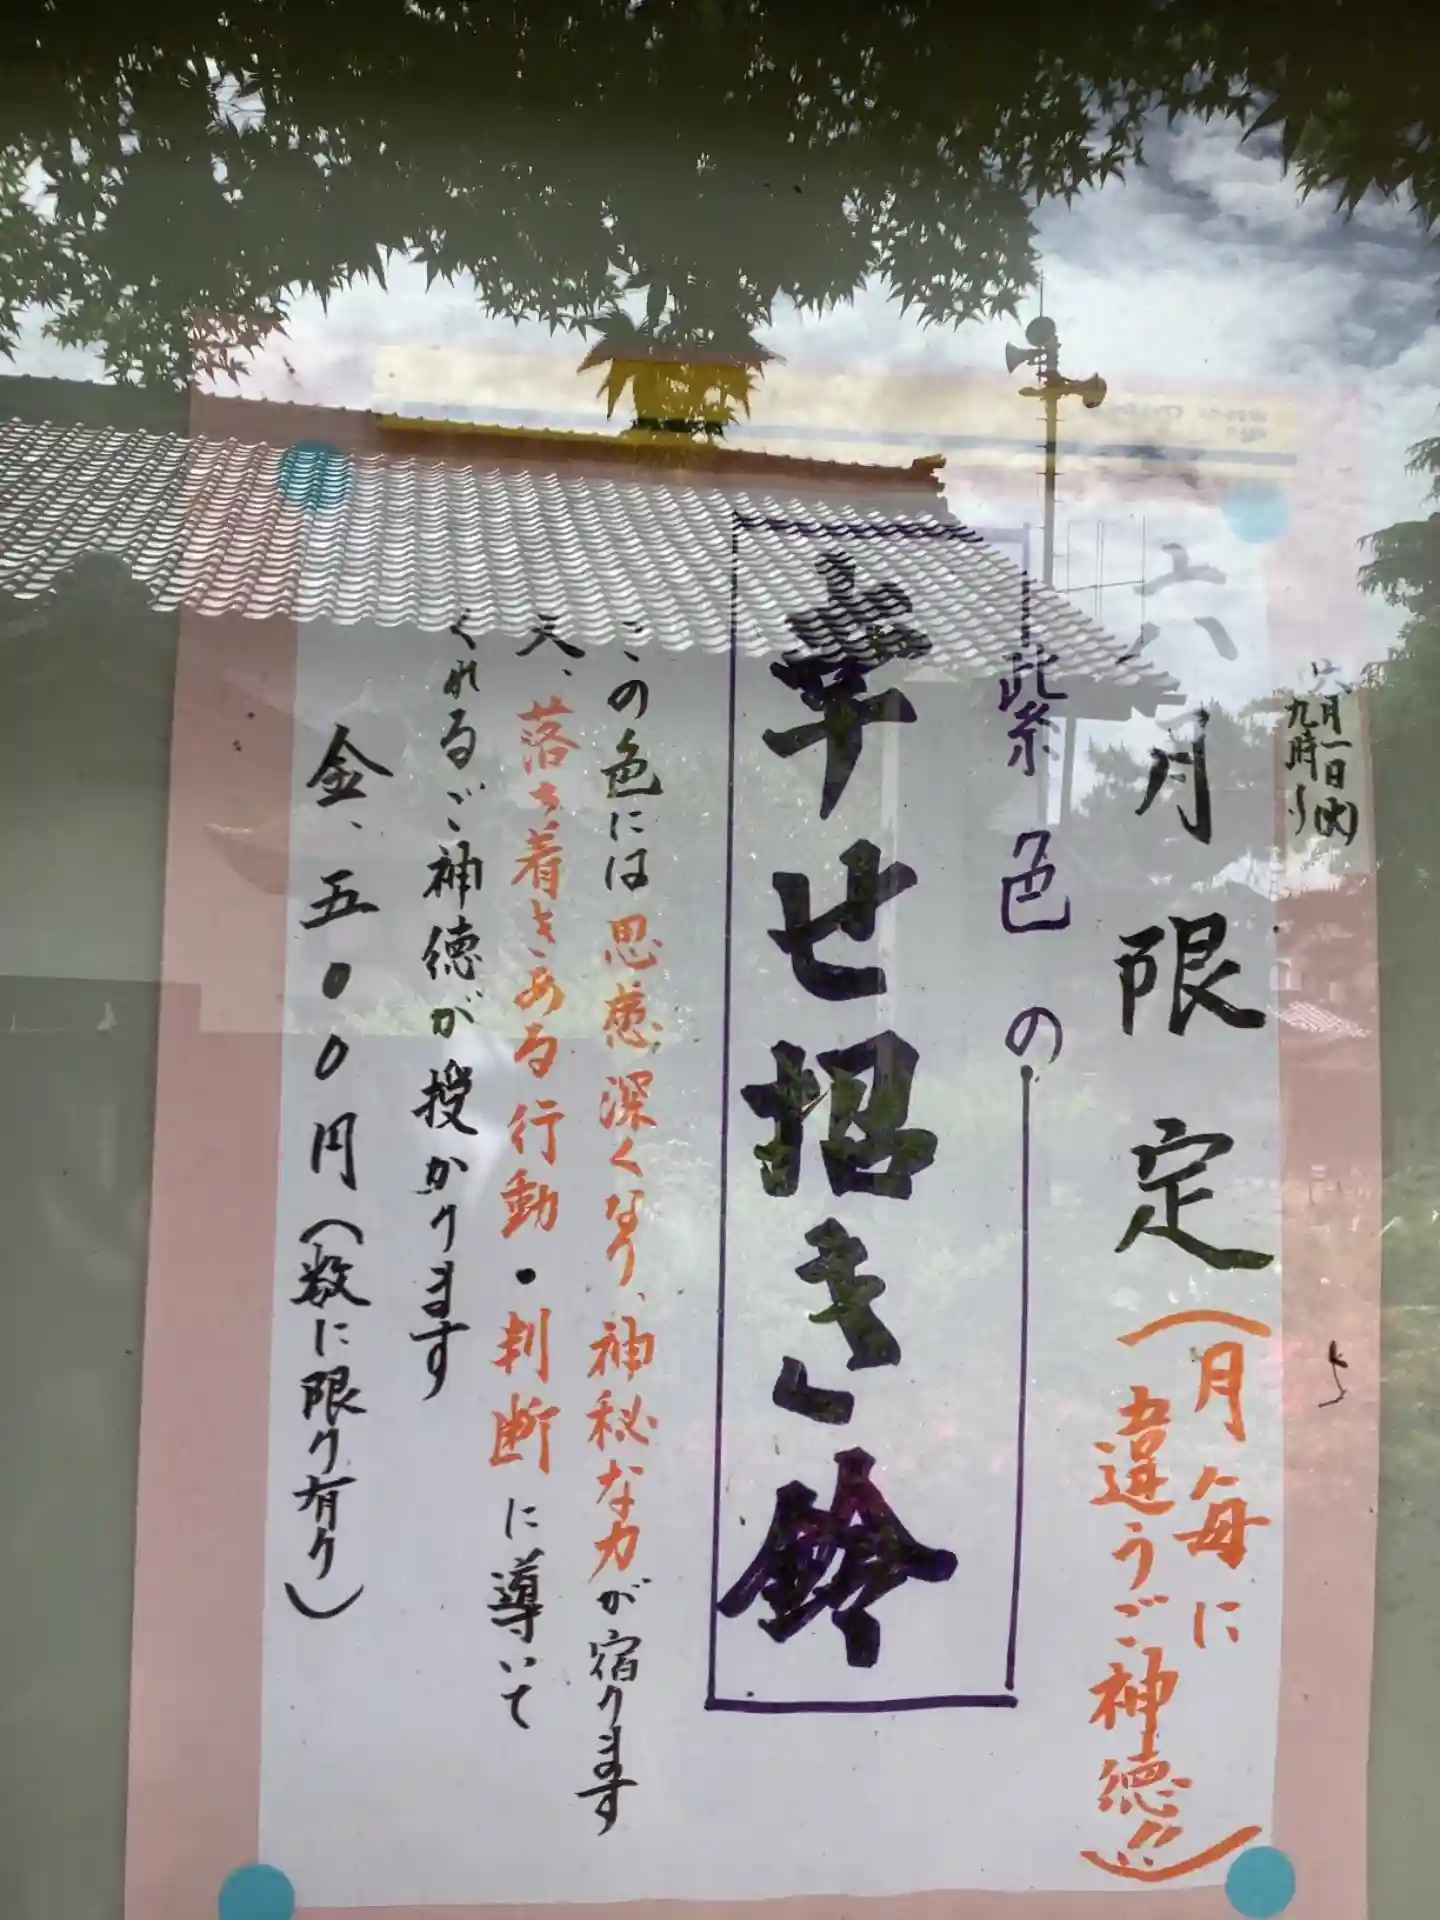 六月一日(火)
九時より
六月限定(月毎に
違うご神徳!!)
紫色の
幸せ招き鈴
この色には思慮深くなり、神秘な力が宿ります
又、落ち着きある行動・判断に導いて
くれるご神徳が授かります
金、五〇〇円(数に限り有り)